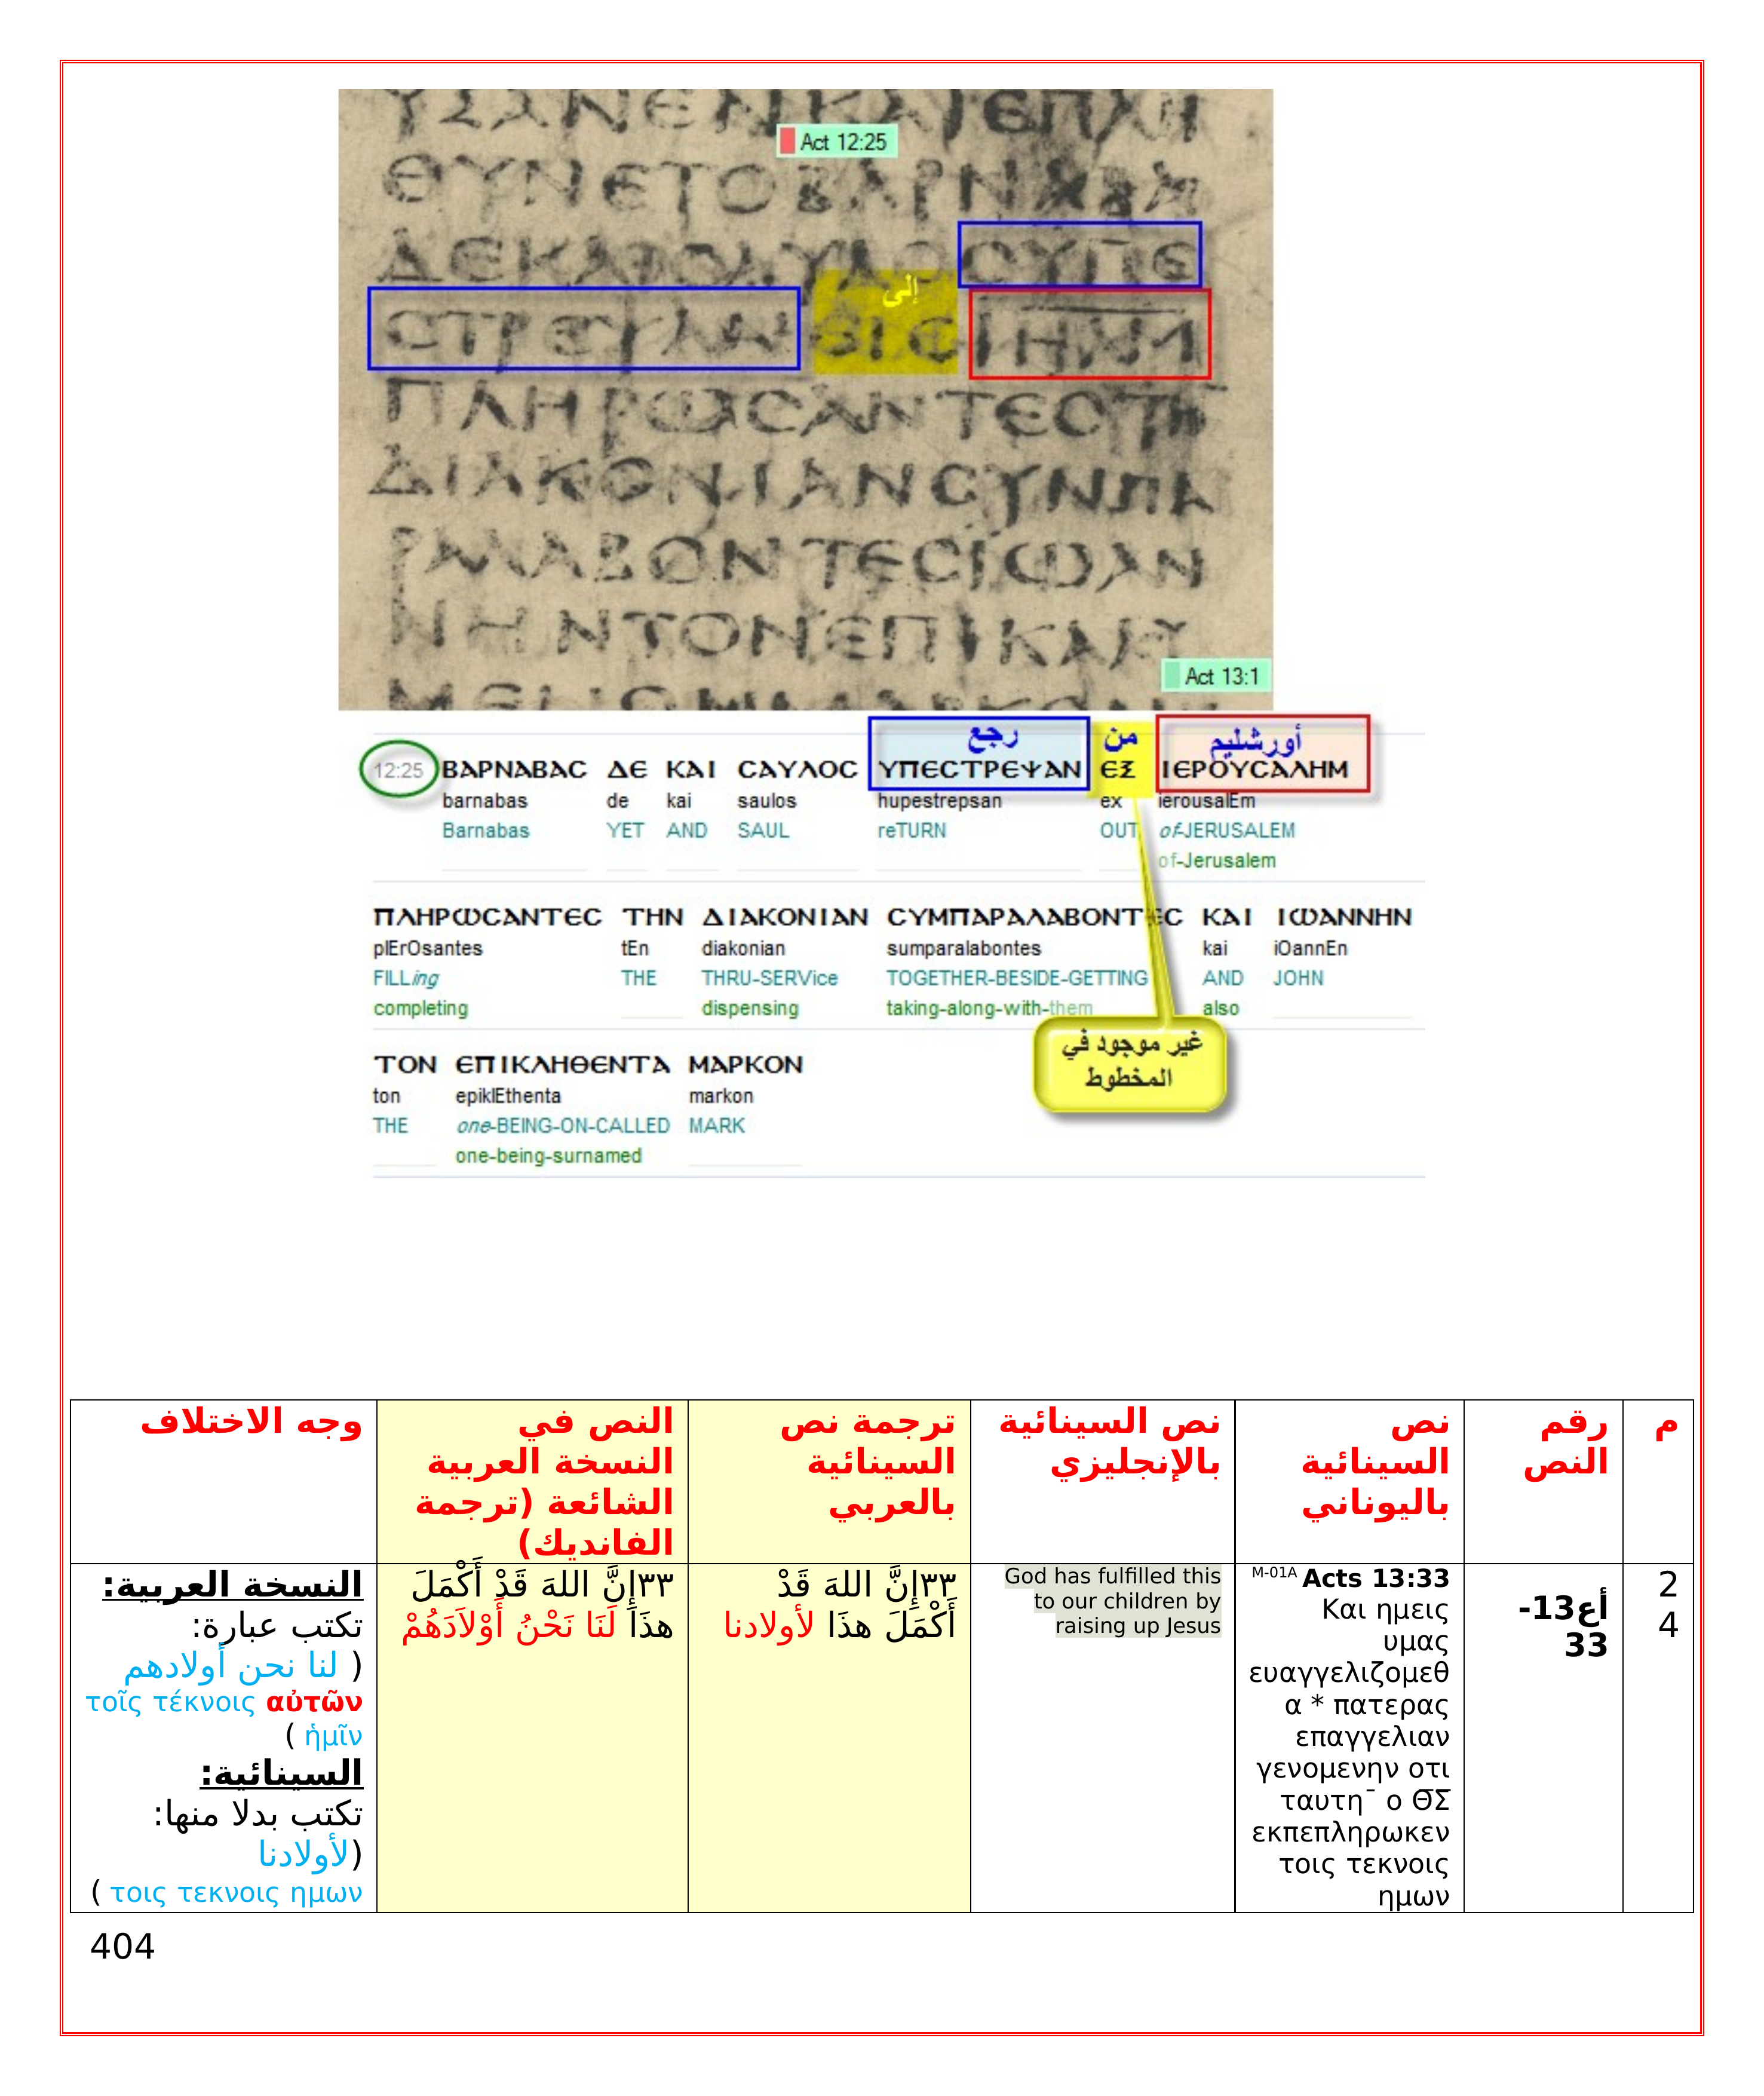 ΥΣΑΝΕΝΚΑΙΕΠΛΗ
Act 12:25
ΘΥΝΕΤΟΒΑΡΝΑΒΑϹ
ΔΕΚΑΙϹΑΥΛΟϹΥΠΕ
إلى
ϹΤΡΕΨΑΝΕΙϹΙΗΛΜ
ΠΛΗΡΩϹΑΝΤΕϹΤΗ
ΔΙΑΚΟΝΙΑΝϹΥΝΠΑ
ΡΑΛΑΒΟΝΤΕϹΙΩΑΝ
ΝΗΝΤΟΝΕΠΙΚΛΗ
Act 13:1
رجع من أورشليم
12:25 ΒΑΡΝΑΒΑϹ ΔΕ ΚΑΙ ϹΑΥΛΟϹ ΥΠΕϹΤΡΕΨΑΝ ΕΞ ΙΕΡΟΥϹΑΛΗΜ
barnabas de kai saulos hupestrepsan ex ierousalEm
Barnabas YET AND SAUL reTURN OUT of-JERUSALEM
of-Jerusalem
ΠΛΗΡΩϹΑΝΤΕϹ ΤΗΝ ΔΙΑΚΟΝΙΑΝ ϹΥΜΠΑΡΑΛΑΒΟΝΤΕϹ ΚΑΙ ΙΩΑΝΝΗΝ
plErOsantes tEn diakonian sumparalabontes kai iOannEn
FILLing THE THRU-SERVice TOGETHER-BESIDE-GETTING AND JOHN
completing dispensing taking-along-with-them also
غير موجود في
المخطوط
ΤΟΝ ΕΠΙΚΛΗΘΕΝΤΑ ΜΑΡΚΟΝ
ton epiklEthenta markon
THE one-BEING-ON-CALLED MARK
one-being-surnamed
م
رقم
النص
نص
السينائية
باليوناني
نص السينائية
بالإنجليزي
ترجمة نص
السينائية
بالعربي
النص في
النسخة العربية
الشائعة (ترجمة
الفانديك)
وجه الاختلاف
2
4
أع13-
33
M-01A Acts 13:33
Και ημεις
υμας
ευαγγελιζομεθ
α * πατερας
επαγγελιαν
γενομενην οτι
ταυτη¯ ο Θ̅Σ̅
εκπεπληρωκεν
τοις τεκνοις
ημων
God has fulfilled this
to our children by
raising up Jesus
٣٣إِنَّ اللهَ قَدْ
أَكْمَلَ هذَا لأولادنا
٣٣إِنَّ اللهَ قَدْ أَكْمَلَ
هذَا لَنَا نَحْنُ أَوْلاَدَهُمْ
النسخة العربية:
تكتب عبارة:
( لنا نحن أولادهم
τοῖς τέκνοις αὐτῶν
ἡμῖν )
السينائية:
تكتب بدلا منها:
(لأولادنا
τοις τεκνοις ημων )
404